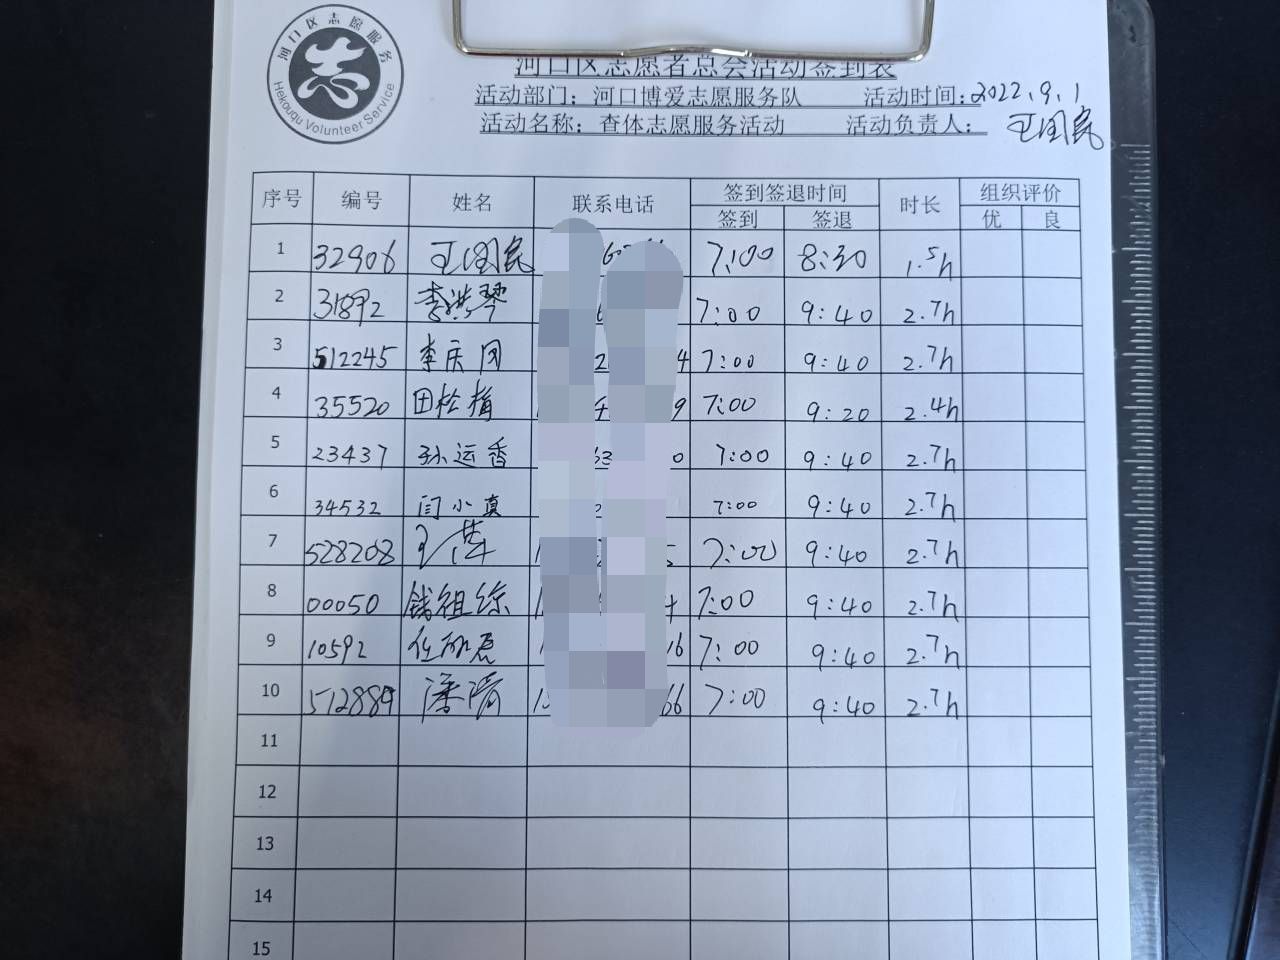 河口区志愿服务
Hekouqu Volunteer Service
河口区志愿者总会活动签到表
活动部门：河口博爱志愿服务队 活动时间：2022.9.1
活动名称：查体志愿服务活动 活动负责人：王国民
序号 编号 姓名 联系电话 签到签退时间 时长 组织评价
签到 签退 优 良
1 32906 王国民 7:00 8:30 1.5h
2 31892 李洪琴 7:00 9:40 2.7h
3 512245 李庆团 4 7:00 9:40 2.7h
4 35520 田松梅 9 7:00 9:20 2.4h
5 23437 孙运香 63 0 7:00 9:40 2.7h
6 34532 闫小真 7:00 9:40 2.7h
7 528208 王萍 1 7:00 9:40 2.7h
8 00050 钱祖综 1 4 7:00 9:40 2.7h
9 10592 任 1 16 7:00 9:40 2.7h
10 512889 潘清 1 66 7:00 9:40 2.7h
11
12
13
14
15